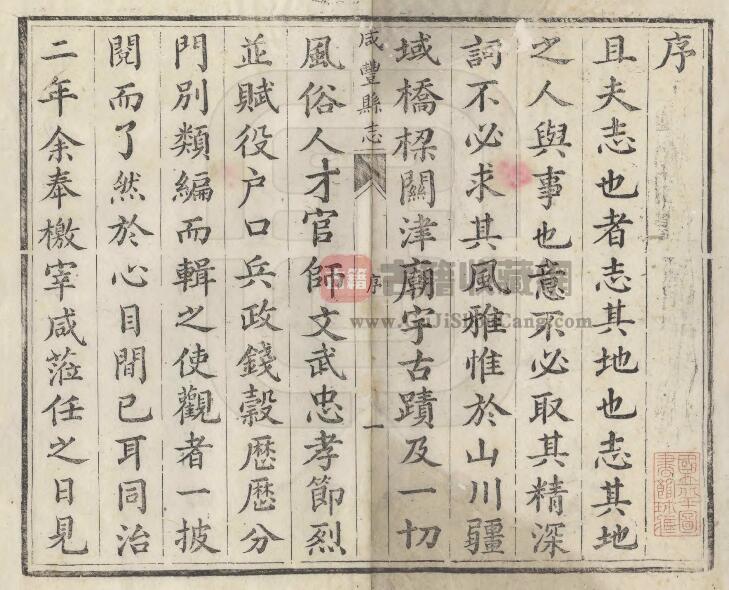 序
且夫志也者志其地也志其地
之人與事也意不必取其精深
詞不必求其風雅惟於山川疆
域橋樑關津廟宇古蹟及一切
咸豐縣志 序 一
風俗人才官師文武忠孝節烈
並賦役户口兵政錢穀歷歷分
門別類編而輯之使觀者一披
閱而了然於心目間已耳同治
二年余奉檄宰咸蒞任之日見
古籍 古籍收藏網